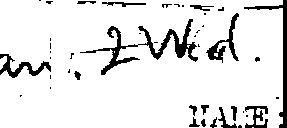 an. 2 Wed.
NAME: